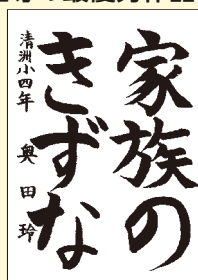 家族の
きずな
清洲小四年 奥田玲